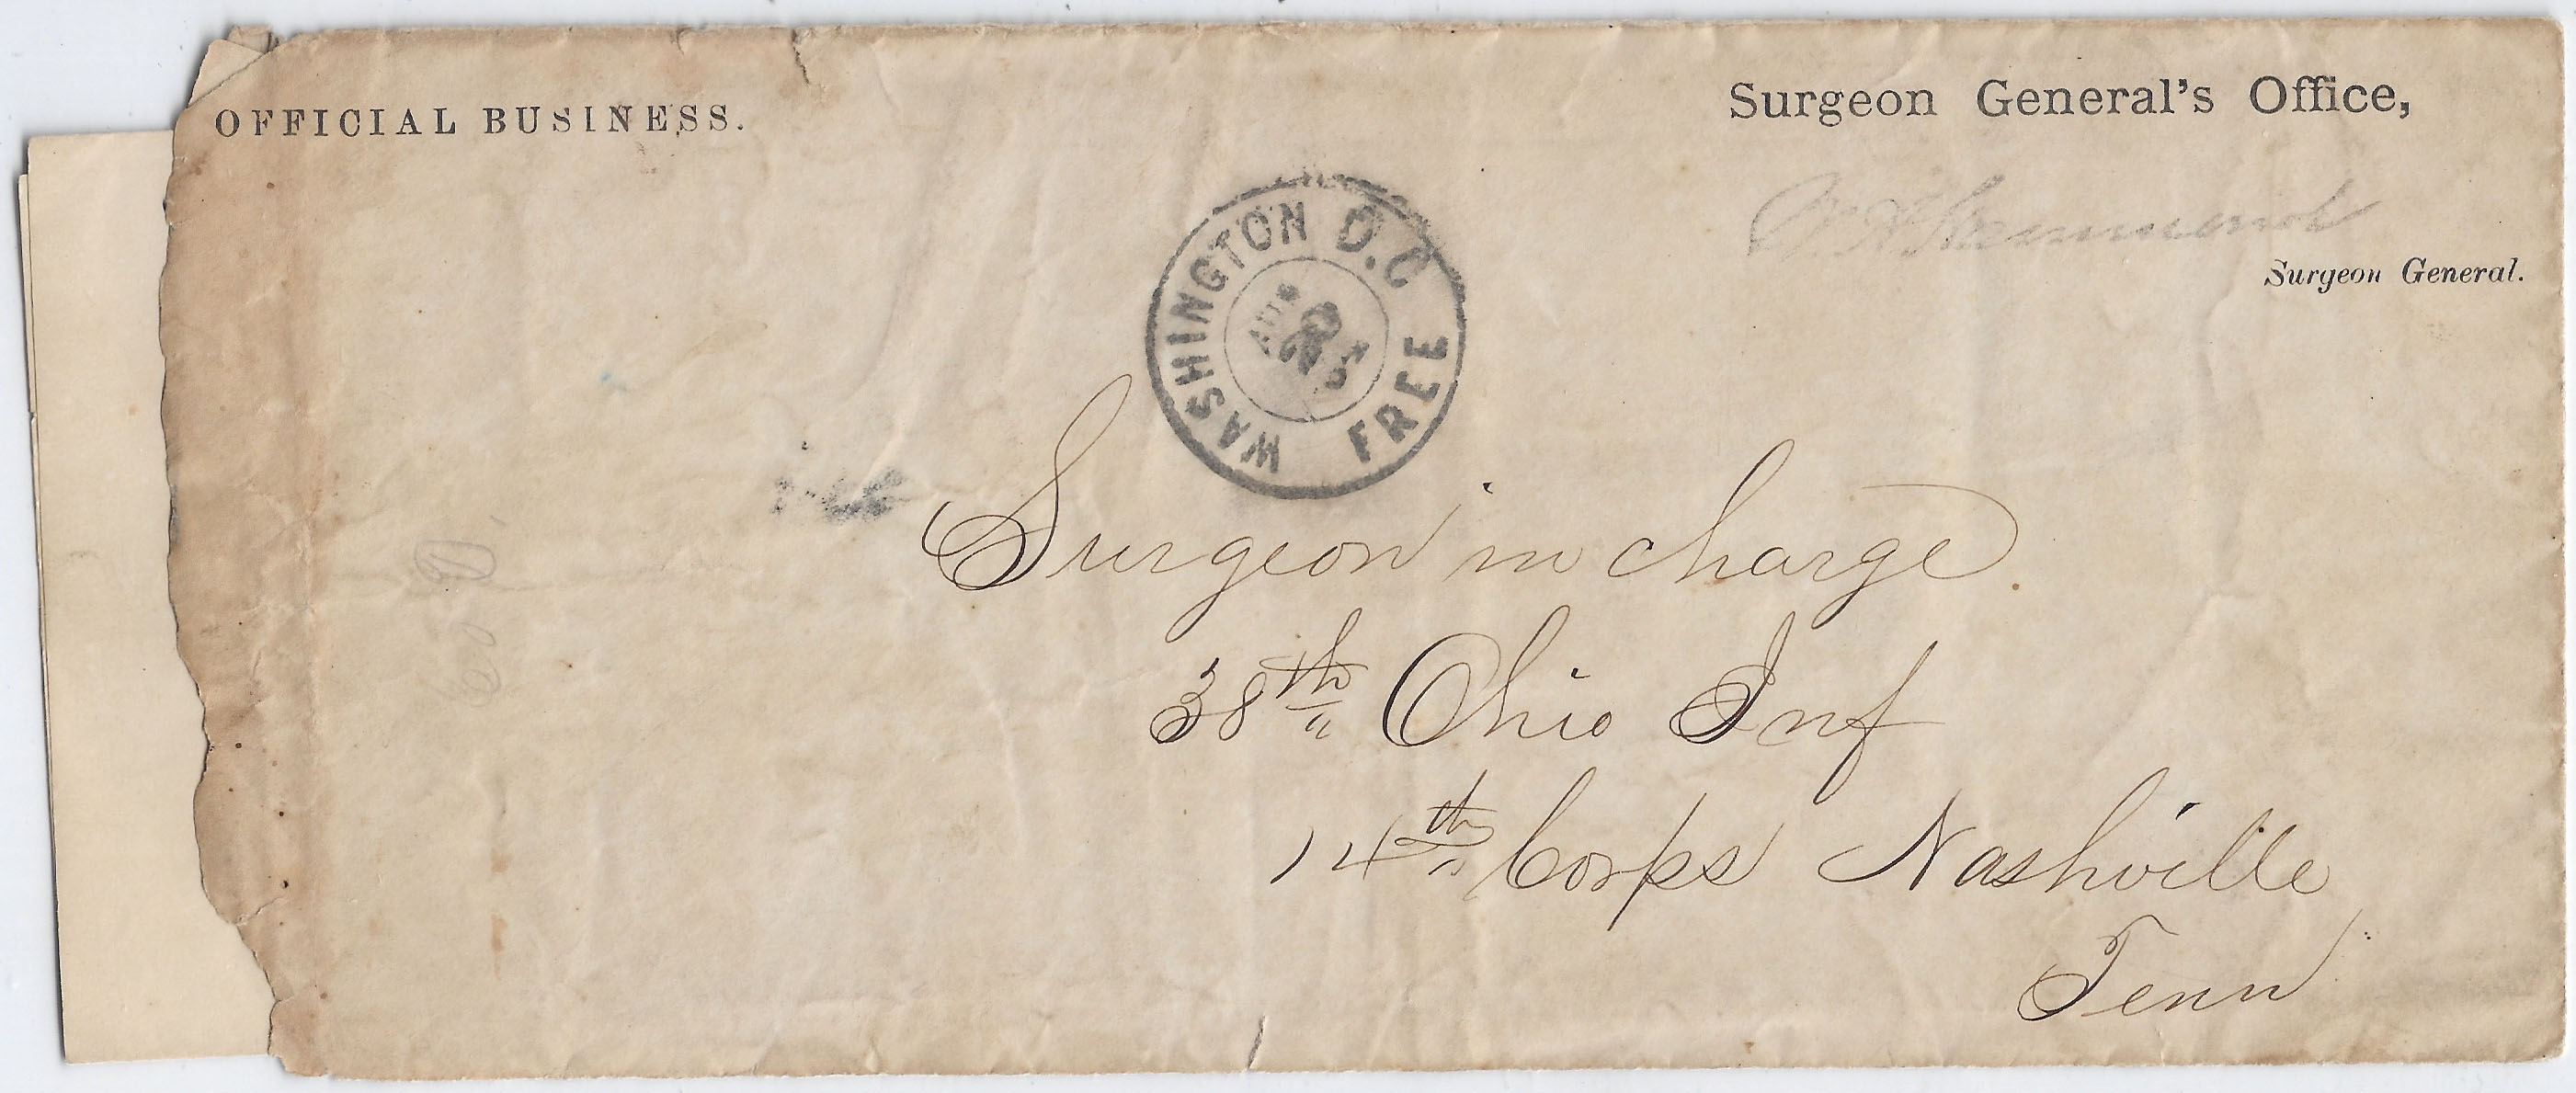 OFFICIAL BUSINESS.
Surgeon General's Office,
W A Hammond
Surgeon General.
WASHINGTON D.C
FREE
Surgeon in charge
38th Ohio Inf
14th Corps Nashville
Tenn